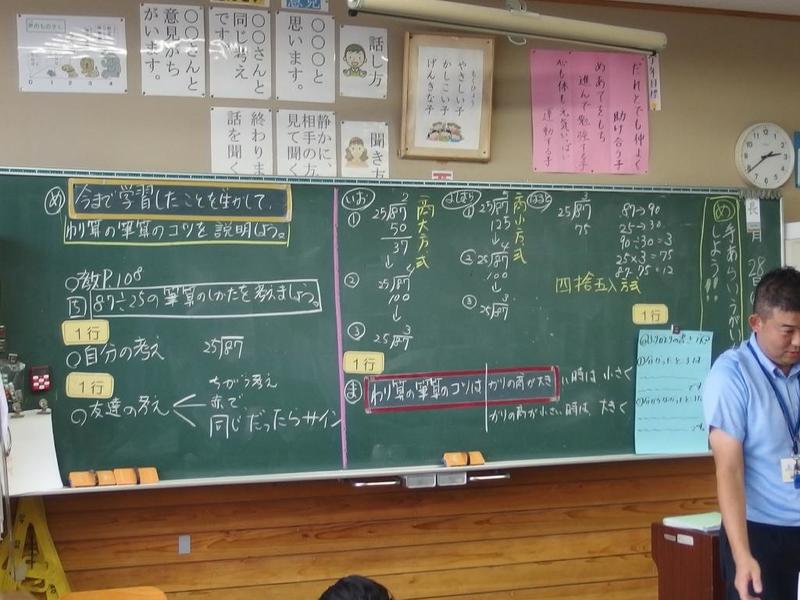 〇〇さんと
意見がち
がいます。
〇〇さんと
同じ考え
です
〇〇〇と
思います。
話し方
終わりま
話を聞く
静かに、
相手の方
見て聞く
聞き方
やさしい子
かしこい子
げんきな子
だれとでも仲よく
助け合う子
めあてをもち
進んで勉強する子
心も体も元気いっぱい
運動する子
め 今まで学習したことを生かして、
わり算の筆算のコツを説明しよう。
○教P.108
5 87÷25の筆算のしかたを考えましょう。
1行
○自分の考え 25)87
1行
○友達の考え
ちがう考え
赤で
同じだったらサイン
① 25)87
50
37
↓
② 25)87
100
↓
③ 25)87
商大方式
① 25)87
125
↓
② 25)87
100
↓
③ 25)87
商小方式
25)87
75
87→90
25→30
90÷30=3
25×3=75
87-75=12
四捨五入方式
1行
1行
ま わり算の筆算のコツは かりの商が大きい時は小さく
かりの商が小さい時は大きく
め 手あらいうがい
しよう!!
月
28